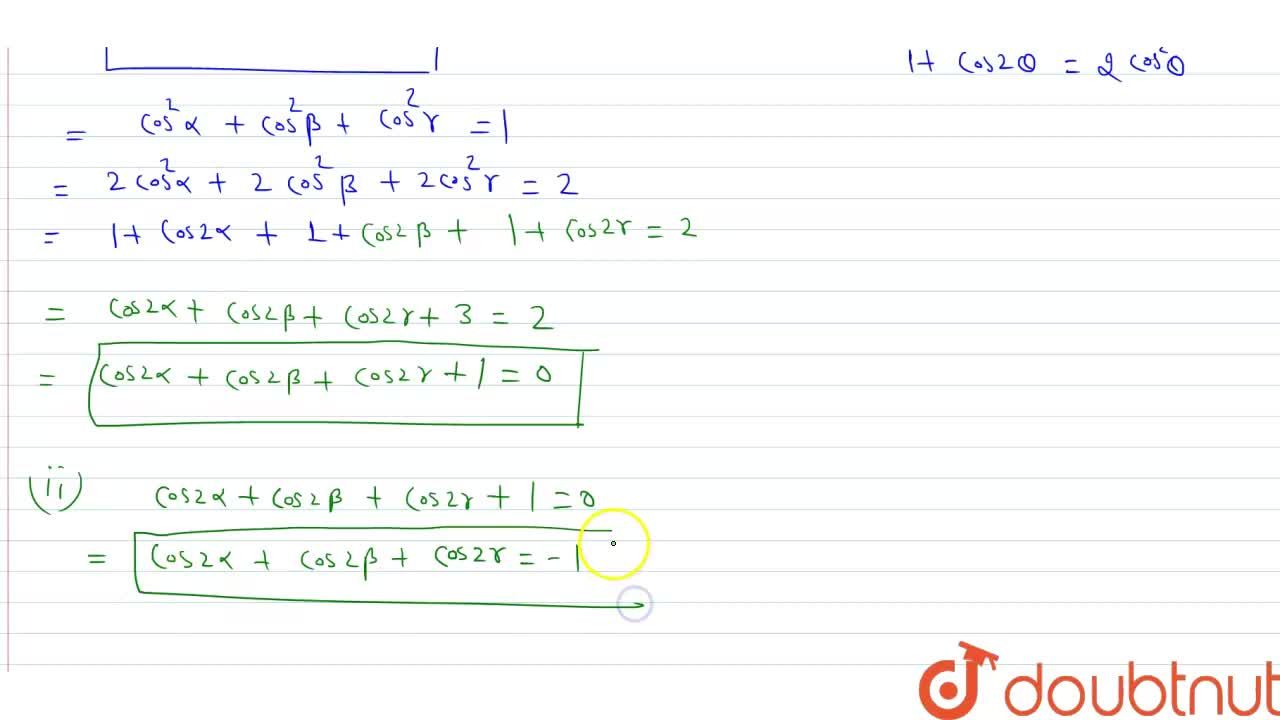 1 + cos2θ = 2cos²θ
= cos²α + cos²β + cos²γ = 1
= 2cos²α + 2cos²β + 2cos²γ = 2
= 1 + cos2α + 1 + cos2β + 1 + cos2γ = 2
= cos2α + cos2β + cos2γ + 3 = 2
= cos2α + cos2β + cos2γ + 1 = 0
(ii) cos2α + cos2β + cos2γ + 1 = 0
= cos2α + cos2β + cos2γ = -1
doubtnut